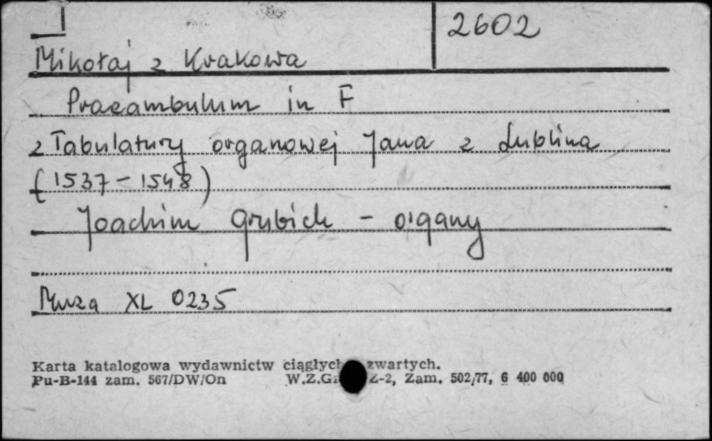 2602
Mikołaj z Krakowa
Praeambulum in F
z Tabulatury organowej Jana z Lublina
(1537-1548)
Joachim Grubich - organy
Muza XL 0235
Karta katalogowa wydawnictw ciągłych zwartych.
Pu-B-144 zam. 567/DW/On W.Z.Gr Z-2, Zam. 502/77, 6 400 000